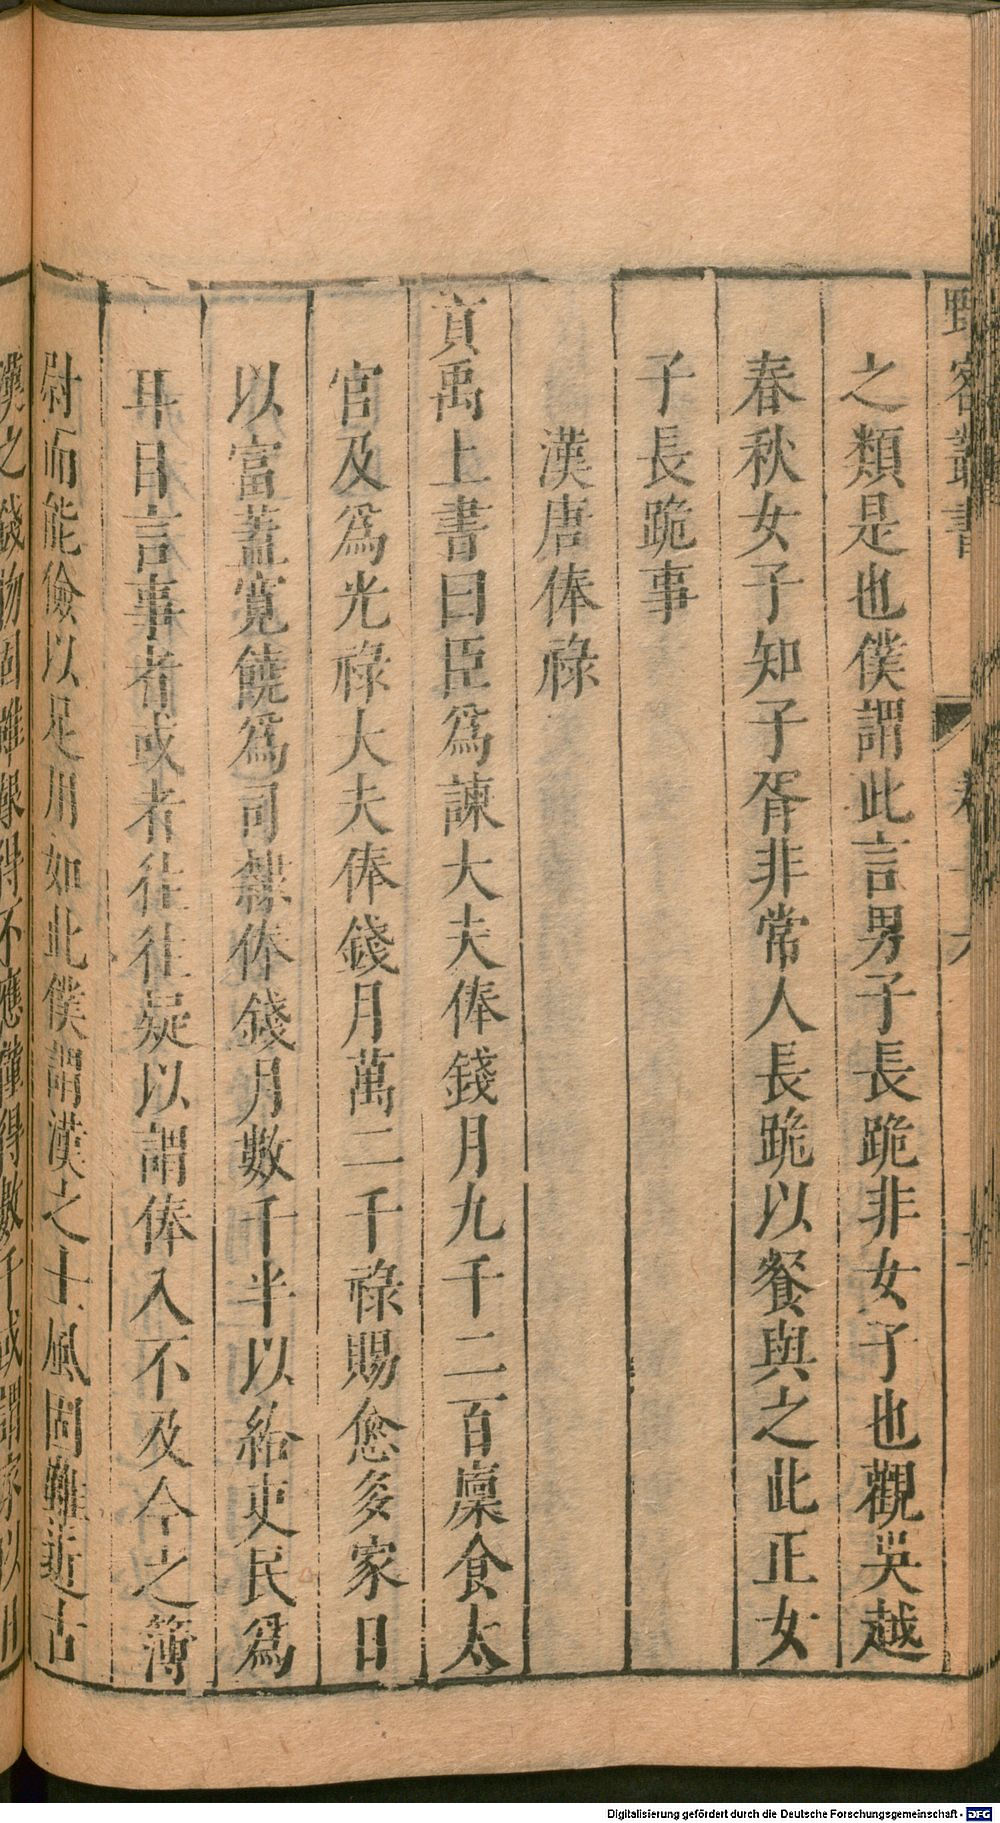 野客叢書 卷十六
之類是也僕謂此言男子長跪非女子也觀吳越
春秋女子知子胥非常人長跪以餐與之此正女
子長跪事
漢唐俸祿
貢禹上書曰臣爲諫大夫俸錢月九千二百廩食太
官及爲光祿大夫俸錢月萬二千祿賜愈多家日
以富蓋寬饒爲司隸俸錢月數千半以給吏民爲
耳目言事者或者往往疑以謂俸入不及今之簿
尉而能儉以足用如此僕謂漢之士風固雖近古
漢之錢物固雖艱得不應僅得數千或謂家以
Digitalisierung gefördert durch die Deutsche Forschungsgemeinschaft - DFG